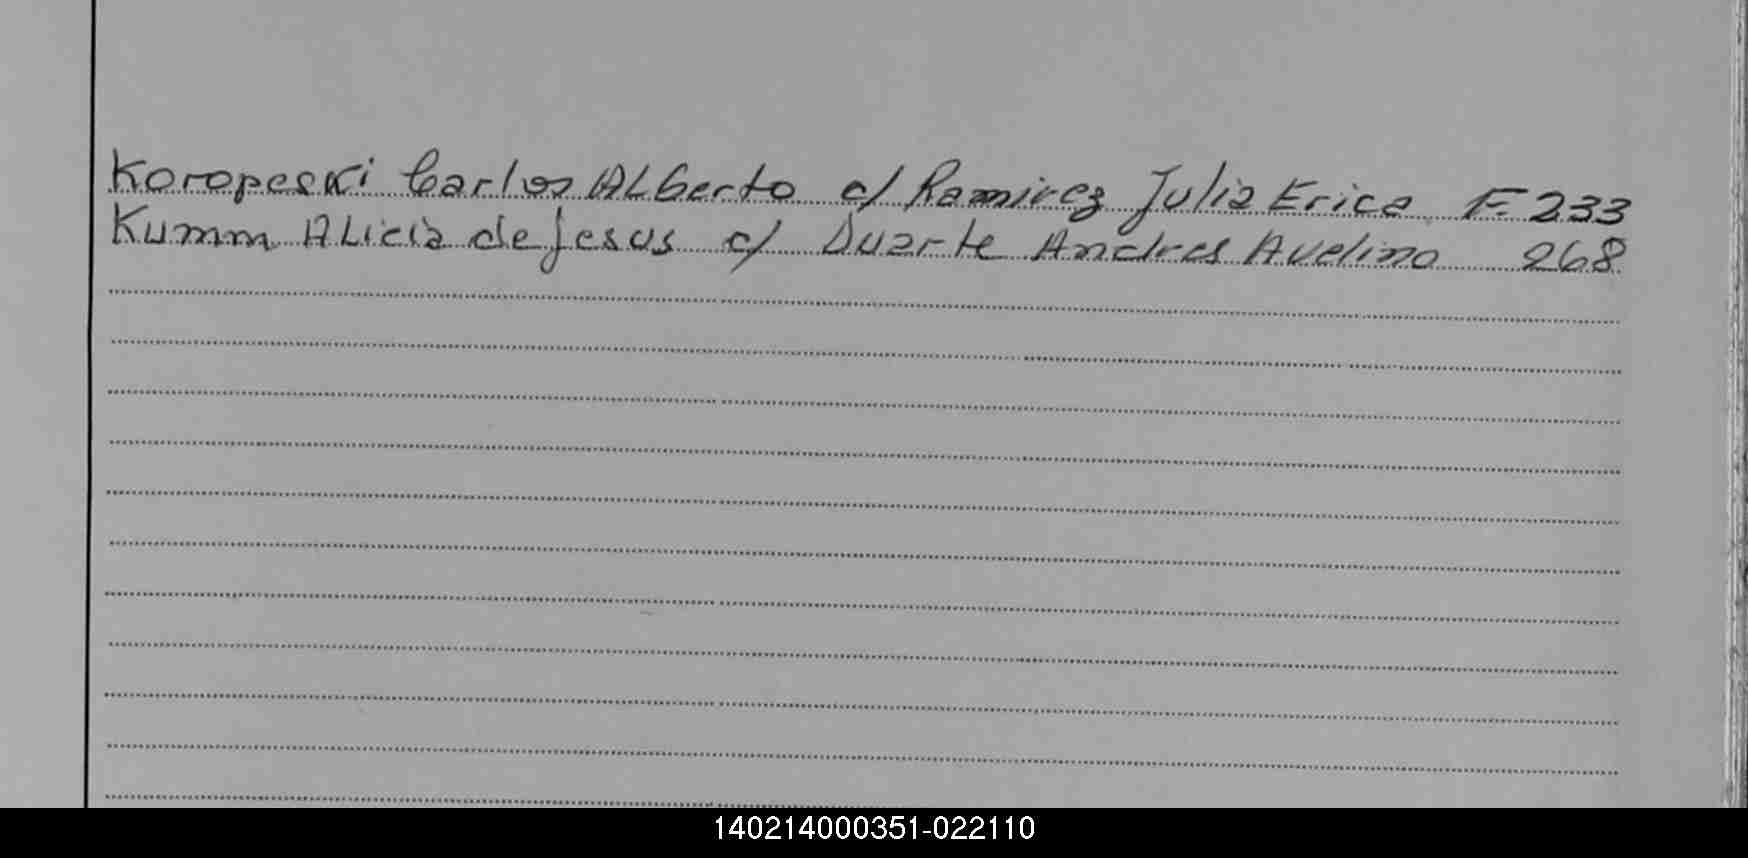 Koropeski Carlos Alberto c/ Ramirez Julia Erica F= 233
Kumm Alicia de Jesus c/ Duarte Andres Avelino 268
140214000351-022110